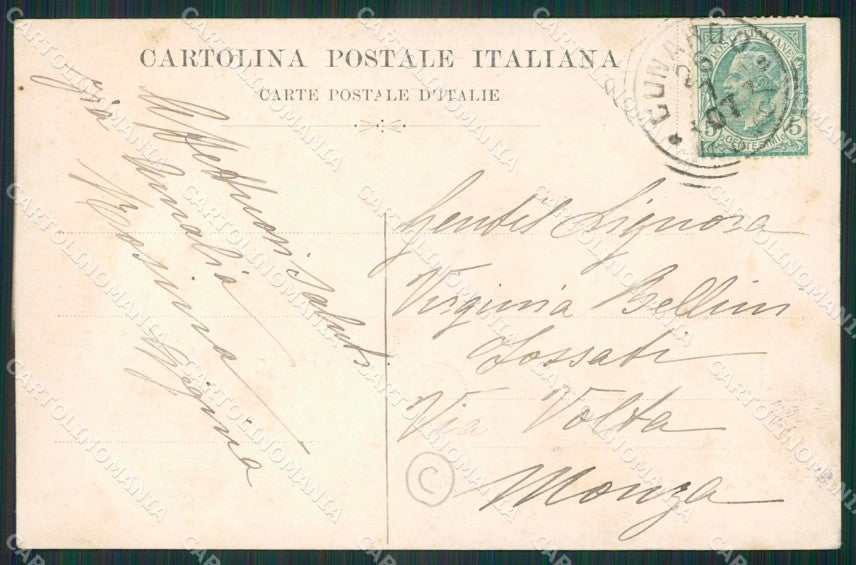 CARTOLINA POSTALE ITALIANA
CARTE POSTALE D'ITALIE
POSTE ITALIANE
5 CENTESIMI 5
CUNARDO
Affettuosi saluti
Zia Amalia
Rosina
Virginia
Gentil Signora
Virginia Bellini
Fossati
Via Volta
Monza
C
CARTOLINOMANIA